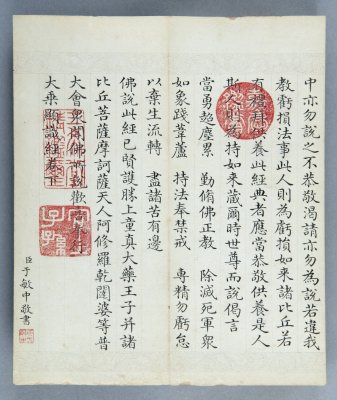 中亦勿說之不恭敬渴請亦勿為說若違我
教虧損法事此人則為虧損如來諸比丘若
有禮拜供養此經典者應當恭敬供養是人
斯人則為持如來藏爾時世尊而說偈言
當勇超塵累 勤脩佛正教 除滅死軍衆
如象踐葦蘆 持法奉禁戒 專精勿虧怠
以棄生流轉 盡諸苦有邊
佛說此經已賢護勝上童真大藥王子并諸
比丘菩薩摩訶薩天人阿修羅乾闥婆等普
大會衆聞佛所說歡喜奉行
大乗顯識經卷下
臣于敏中敬書